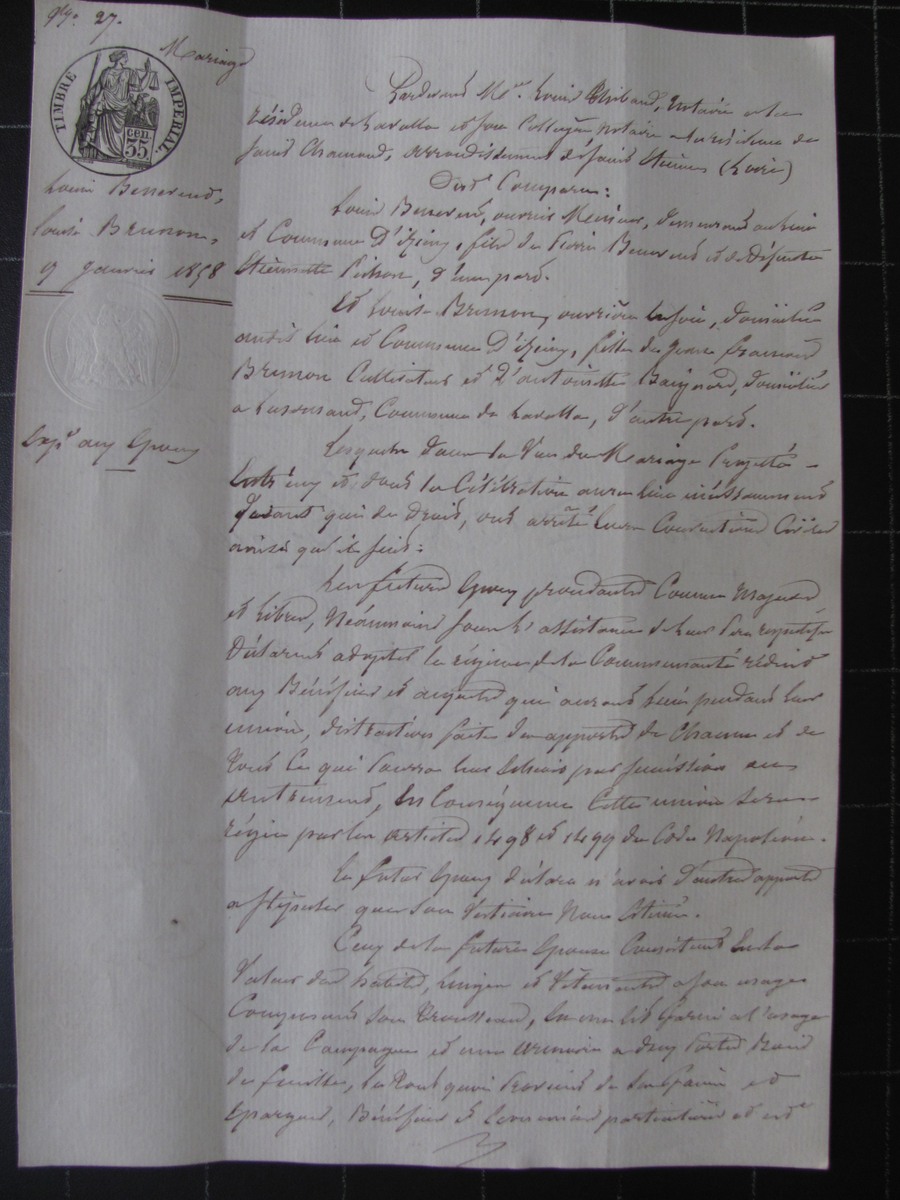 27.
Mariage
TIMBRE IMPÉRIAL.
35 cen.
Louis Besserend,
Louise Brunon,
9 Janvier 1858
aux Epoux
Pardevant Me. Louis Thibaud, Notaire à la
résidence de Lavalla et son Collègue Notaire à la résidence de
Saint Chamond, arrondissement de Saint Etienne (Loire)
Comparu:
Louis Besserend, ouvrier Mineur, demeurant au lieu
et Commune D'Izieux, fils de Pierre Besserend et de défunte
d'une part.
Et Louise Brunon, ouvrière en soie, domiciliée
audit lieu et Commune D'Izieux, fille de Jean
Brunon Cultivateur et D'antoinette domiciliés
a Commune de Lavalla, d'autre part.
Lesquels dans la Vue du Mariage Projetté
entr'eux et dont la Célébration aura lieu incessamment
devant qui de Droit, ont arrêté leurs Conventions Civiles
ainsi qu'il suit:
Les futurs Epoux procédant Comme Majeurs
et Libres, Néanmoins sous l'assistance de leurs Pères respectifs
Déclarent adopter le régime de la Communauté réduite
aux Bénéfices et acquets qui auront lieu pendant leur
union, distraction faite des apports de Chacun et de
Tout Ce qui Pourra leur Echoir par succession ou
autrement, En Conséquence Cette union sera
régie par les articles 1498 et 1499 du Code Napoléon.
Le futur Epoux déclare n'avoir D'autres apports
que son Vestiaire Non Estimé.
Ceux de la future Epouse Consistent En la
Valeur des habits, Linges et Vêtements a son usage
Composant son Trousseau, En un lit garni a l'usage
de la Campagne et une armoire a deux Portes Bois
de le Tout Provient de Ses Gains et
Epargnes, Bénéfices et économies particulières et est